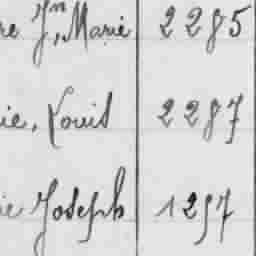 re Jn, Marie 2285
ie, Louis 2287
ie Joseph 1297